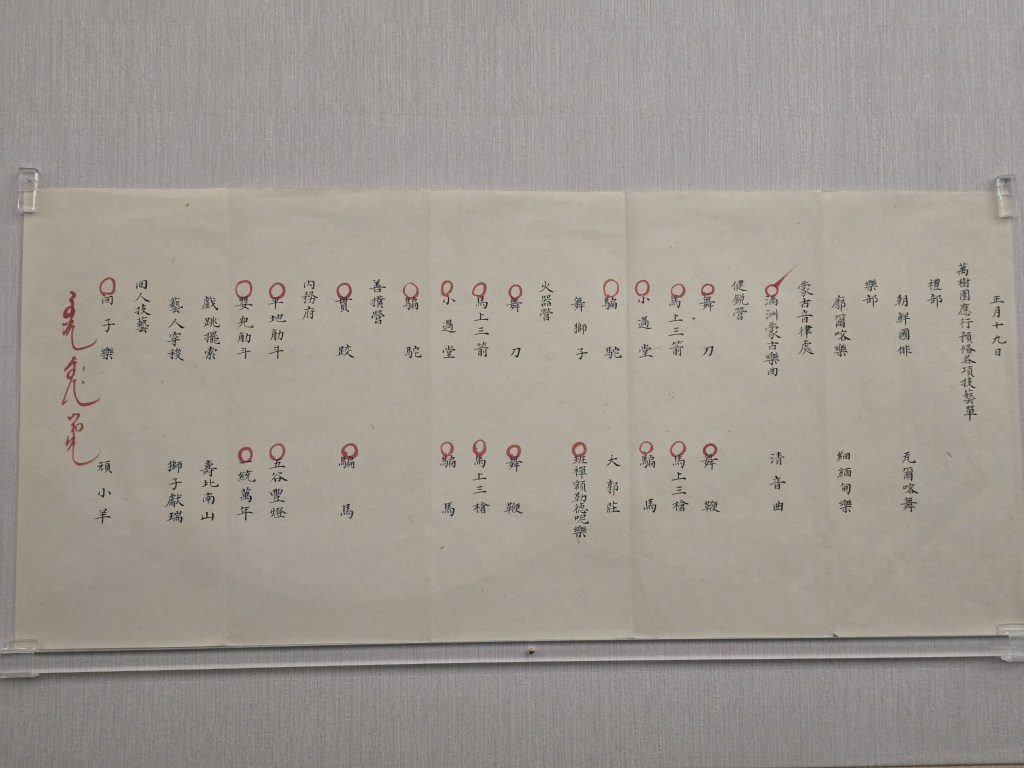 正月十九日
萬樹園應行預備各項技藝單
禮部
朝鮮國俳　瓦爾喀舞
樂部
廓爾喀樂　細緬甸樂
蒙古音律處
滿洲蒙古樂曲　清音曲
健銳營
舞刀　舞鞭
馬上三箭　馬上三槍
小過堂　騙馬
騙駝　大郭莊
舞獅子　班禪額勒德呢樂
火器營
舞刀　舞鞭
馬上三箭　馬上三槍
小過堂　騙馬
騙駝
善撲營
貫跤　騙馬
內務府
平地觔斗　五谷豐燈
嬰兒觔斗　一統萬年
戲跳擺索　壽比南山
藝人穿梭　獅子獻瑞
回人技藝
回子樂　頑小羊